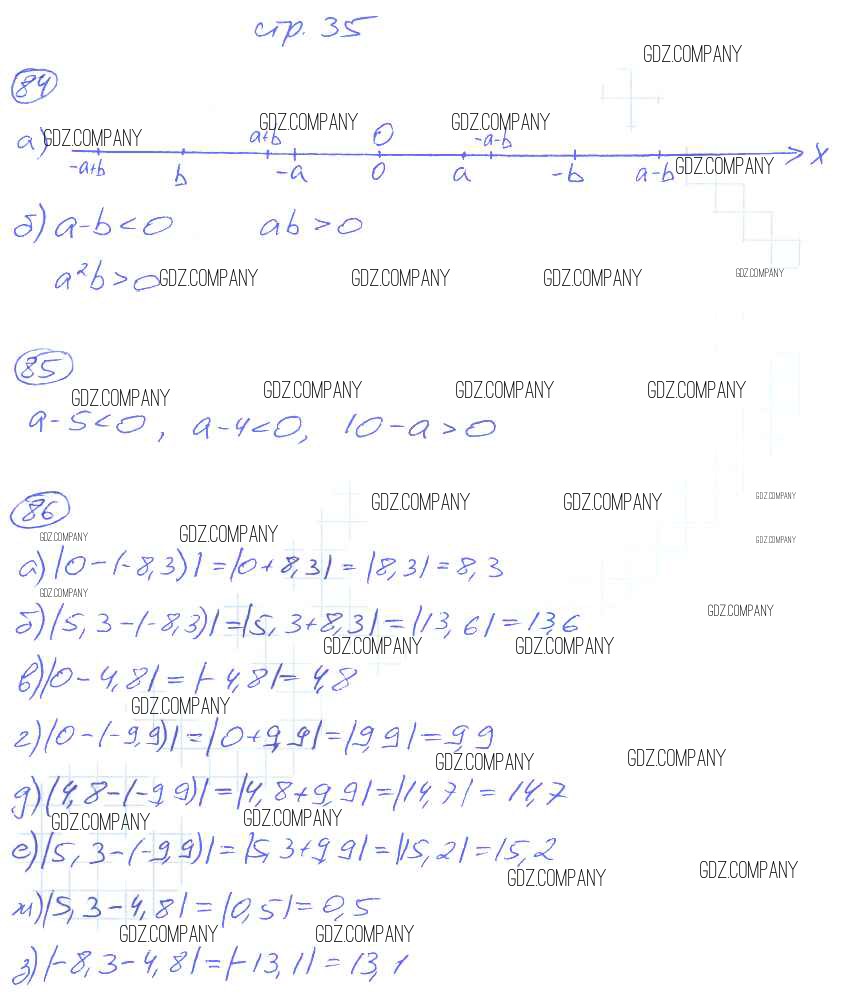 стр. 35
GDZ.COMPANY
84
GDZ.COMPANY GDZ.COMPANY
а) GDZ.COMPANY a+b 0 -a-b
-a+b b -a 0 a -b a-b GDZ.COMPANY x
б) a-b<0 ab>0
a²b>0 GDZ.COMPANY GDZ.COMPANY GDZ.COMPANY GDZ.COMPANY
85
GDZ.COMPANY GDZ.COMPANY GDZ.COMPANY GDZ.COMPANY
a-5<0, a-4<0, 10-a>0
86 GDZ.COMPANY GDZ.COMPANY GDZ.COMPANY
GDZ.COMPANY GDZ.COMPANY GDZ.COMPANY
а) |0-(-8,3)|=|0+8,3|=|8,3|=8,3
GDZ.COMPANY GDZ.COMPANY
б) |5,3-(-8,3)|=|5,3+8,3|=|13,6|=13,6
GDZ.COMPANY GDZ.COMPANY
в) |0-4,8|=|-4,8|=4,8
GDZ.COMPANY
г) |0-(-9,9)|=|0+9,9|=|9,9|=9,9
GDZ.COMPANY GDZ.COMPANY
д) |4,8-(-9,9)|=|4,8+9,9|=|14,7|=14,7
GDZ.COMPANY GDZ.COMPANY
е) |5,3-(-9,9)|=|5,3+9,9|=|15,2|=15,2
GDZ.COMPANY GDZ.COMPANY
ж) |5,3-4,8|=|0,5|=0,5
GDZ.COMPANY GDZ.COMPANY
з) |-8,3-4,8|=|-13,1|=13,1